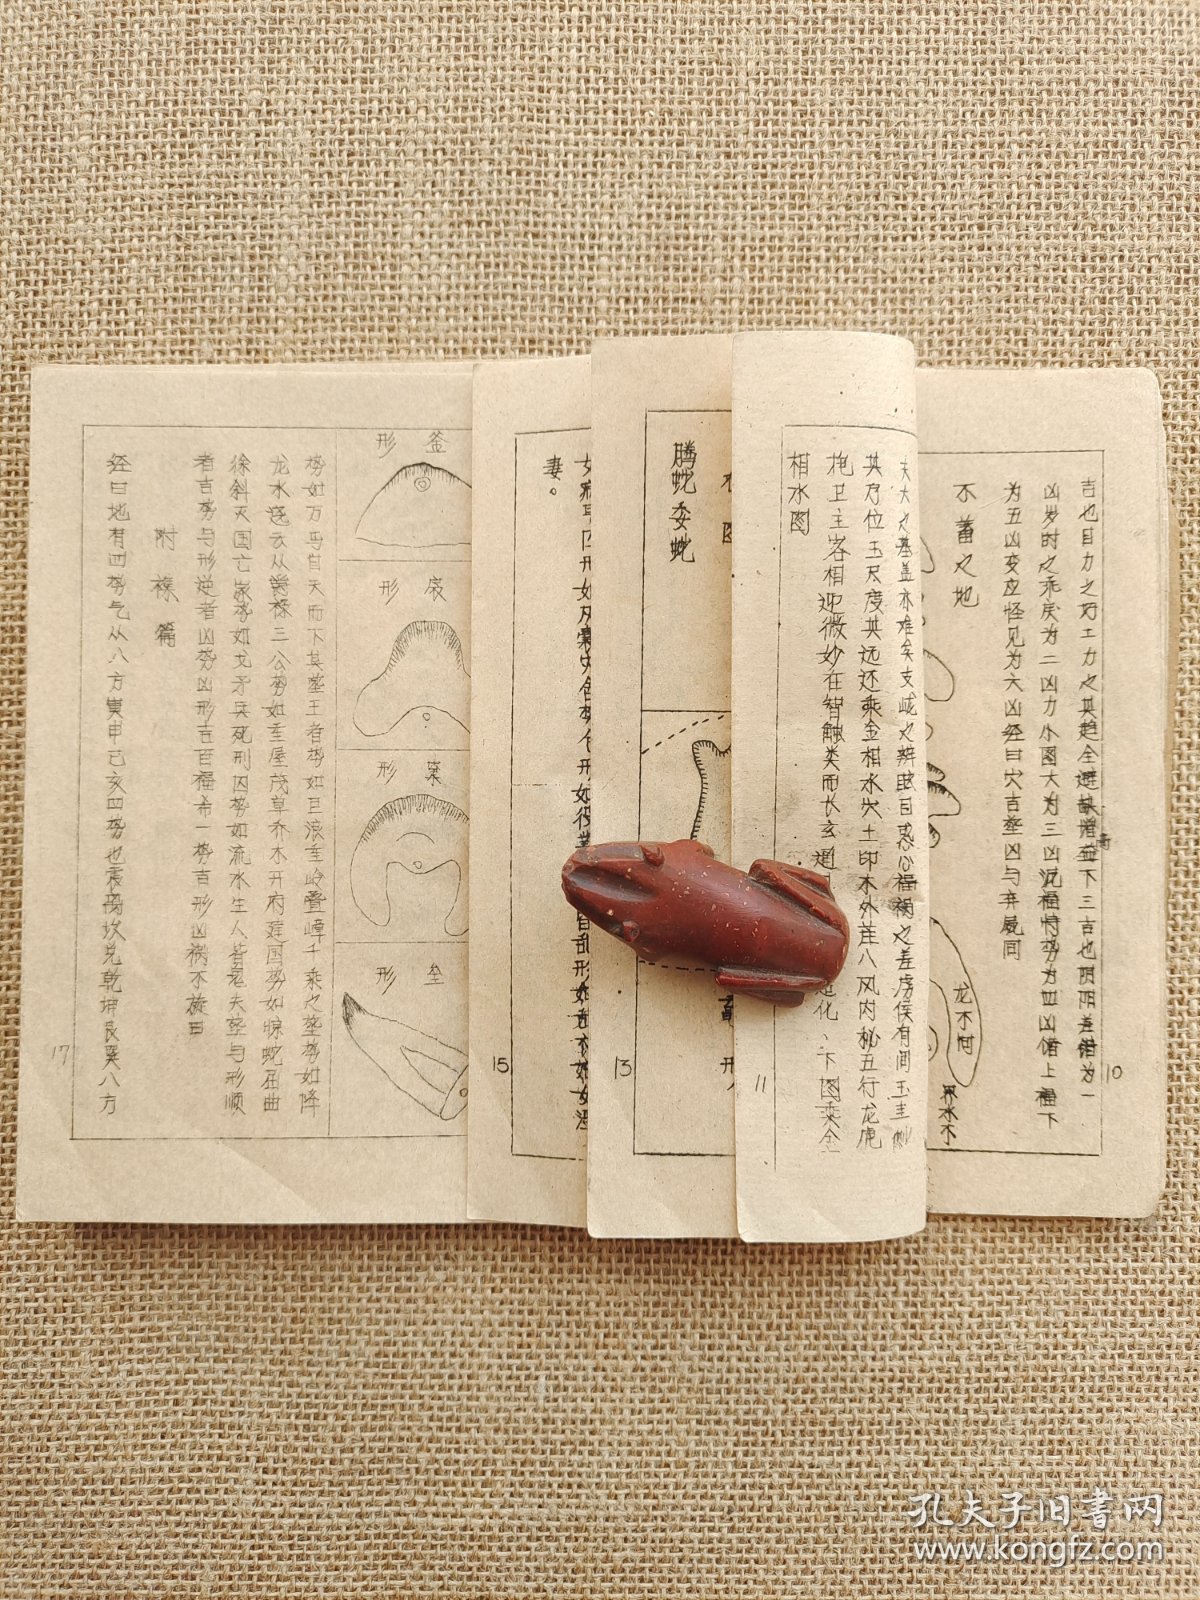 吉也目力之巧工力之其趋全避缺增高益下三吉也阴阳差错为一
凶岁时之乖戾为二凶力小图大为三凶沉福恃势为四凶僭上福下
为五凶变应怪见为六凶经曰穴吉葬凶与弃屍同
不蓄之地
龙不问
界水不
10
夫大之基盖亦难矣支岐之辨眩目惑心福祸之差虏侯有间玉圭
其方位玉尺度其远还乘金相水穴土印木外在八风内秘五行龙虎
抱卫主客相迎微妙在智触类而长玄通
造化、下图乘金
相水图
11
图
腾蛇委蛇
形
13
妻。
15
釜形
扆形
梁形
垒形
势如万马自天而下其葬王者势如巨浪重岭叠嶂千乘之葬势如降
龙水遶云从爵禄三公势如重屋茂草乔木开府建国势如惊蛇屈曲
徐斜灭国亡家势如戈矛兵死刑囚势如流水生人皆鬼夫葬与形顺
者吉势与形逆者凶势凶形吉百福希一势吉形凶祸不旋日
附禄篇
经曰地有四势气从八方寅申已亥四势也震离坎兑乾坤艮巽八方
17
孔夫子旧书网
www.kongfz.com